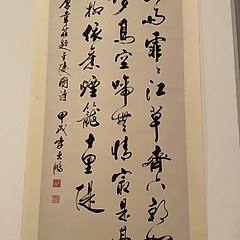 雨霏〻江草齊六朝
夢鳥空啼無情最是
柳依舊煙籠十里堤
唐韋莊題金陵圖詩
甲戌李